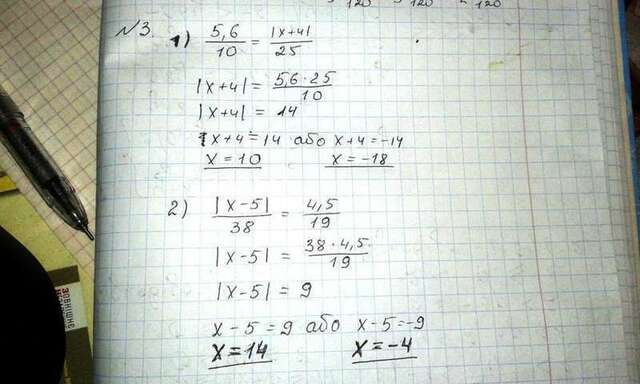 120 120 120
№3.
1) 5,6/10 = |x+4|/25
|x+4| = 5,6·25/10
|x+4| = 14
x+4=14 або x+4=-14
x=10 x=-18
2) |x-5|/38 = 4,5/19
|x-5| = 38·4,5/19
|x-5| = 9
x-5=9 або x-5=-9
x=14 x=-4
Зовнішнє